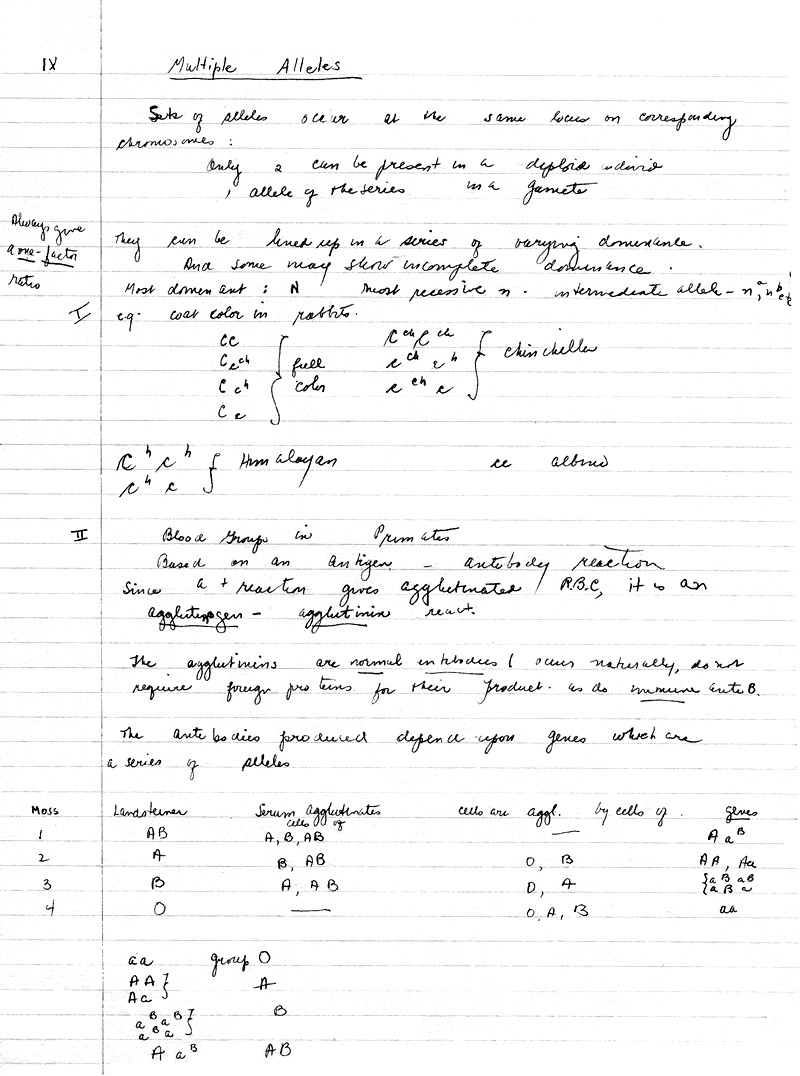 IX Multiple Alleles
Sets of alleles occur at the same locus on corresponding
chromosomes :
Only 2 can be present in a diploid individ
1 allele of the series in a gamete
Always give
a one-factor
ratio
They can be lined up in a series of varying dominance.
And some may show incomplete dominance.
Most dominant : N most recessive n. intermediate allele - nᵃ, nᵇ etc
I e.g. coat color in rabbits.
CC cᶜʰcᶜʰ
Ccᶜʰ full cᶜʰcʰ chinchilla
Ccʰ color cᶜʰc
Cc
cʰcʰ Himalayan cc albino
cʰc
II Blood Groups in Primates
Based on an antigen - antibody reaction
Since a + reaction gives agglutinated R.B.C, it is an
agglutinogen - agglutinin react.
The agglutinins are normal antibodies ( occur naturally, do not
require foreign proteins for their product. as do immune anti B.
The antibodies produced depend upon genes which are
a series of alleles
Moss Landsteiner Serum agglutinates cells of cells are aggl. by cells of. genes
1 AB A, B, AB — A aᴮ
2 A B, AB O, B AA, Aa
3 B A, AB O, A {aᴮ aᴮ
{aᴮ a
4 O — O, A, B aa
aa group O
AA } A
Aa }
aᴮaᴮ } B
aᴮa }
A aᴮ AB